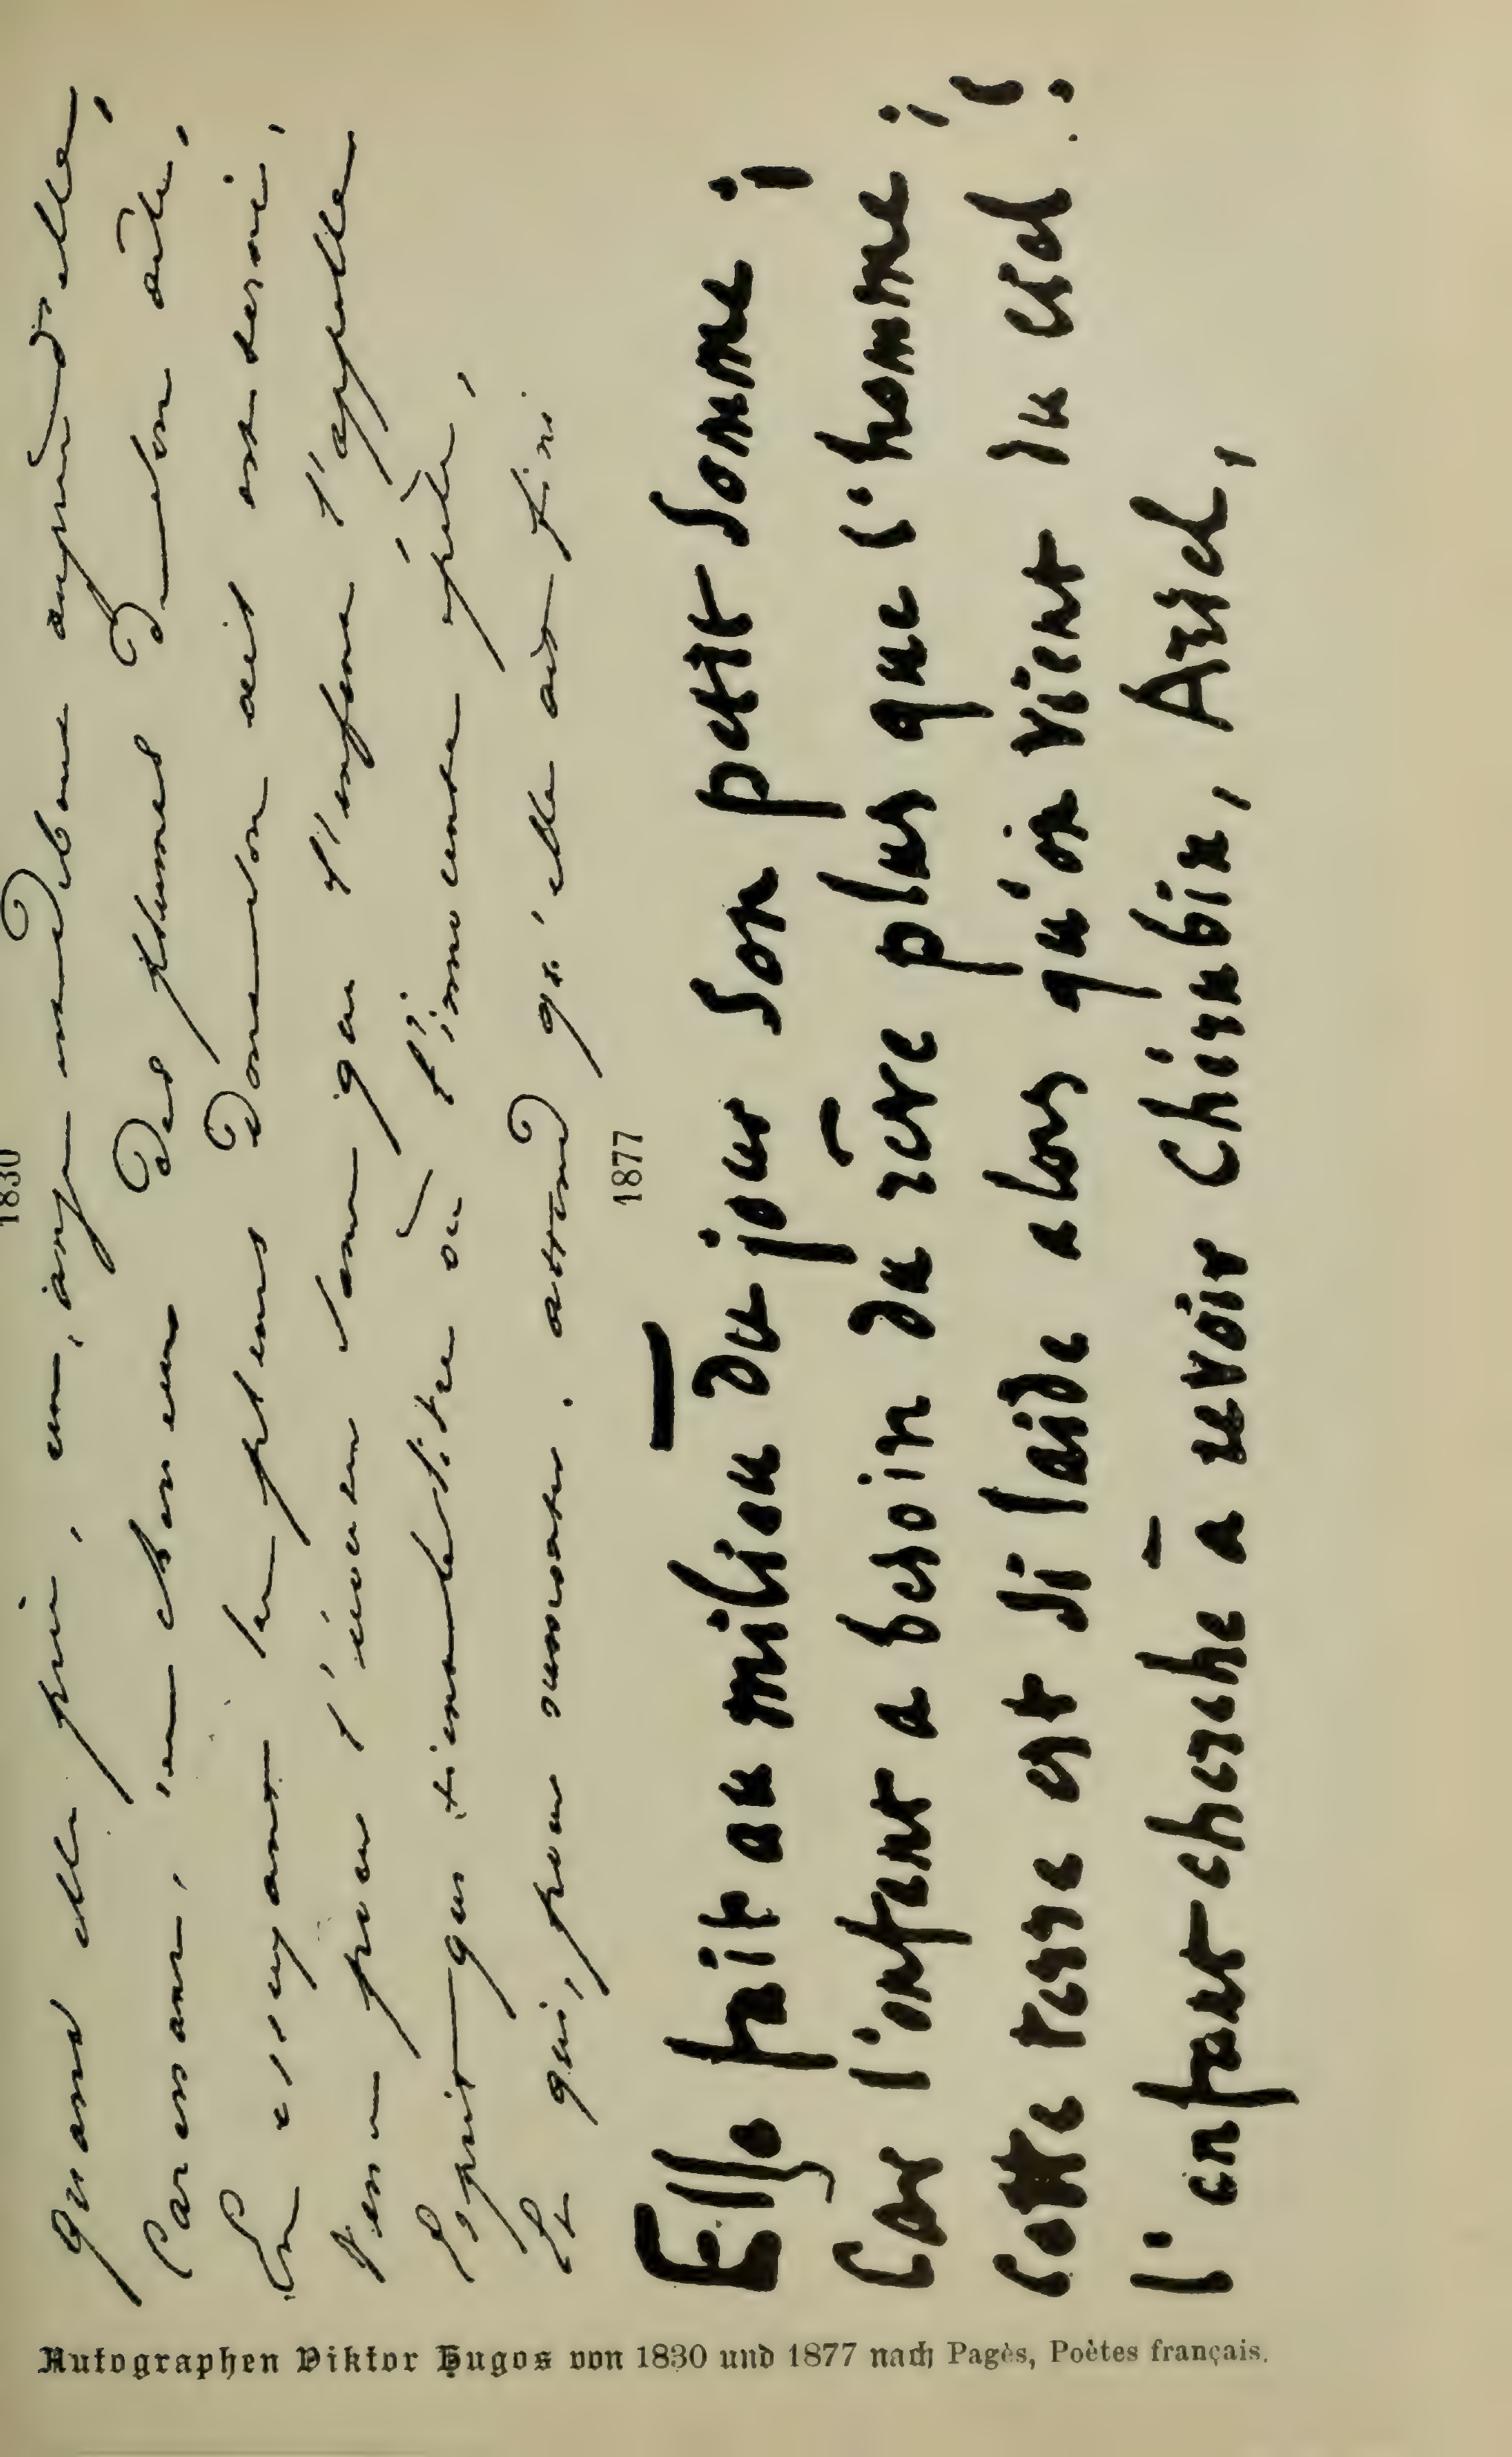 1830
Quand elle prie, un ange est debout auprès d'elle,
Caressant ses cheveux des plumes de son aile,
En essuyant les pleurs dont son œil est terni,
Venu pour l'écouter sans que l'enfant l'appelle
Esprit qui tient le livre où l'innocente épèle,
Et qui, pour remonter, attend qu'elle ait fini.
1877
Elle fait au milieu du jour son petit somme ;
Car l'enfant a besoin du rêve plus que l'homme ;
Cette terre est si laide alors qu'on vient du ciel !
l'enfant cherche à revoir Chérubin, Ariel,
Autographen Viktor Hugos von 1830 und 1877 nach Pagès, Poètes français.